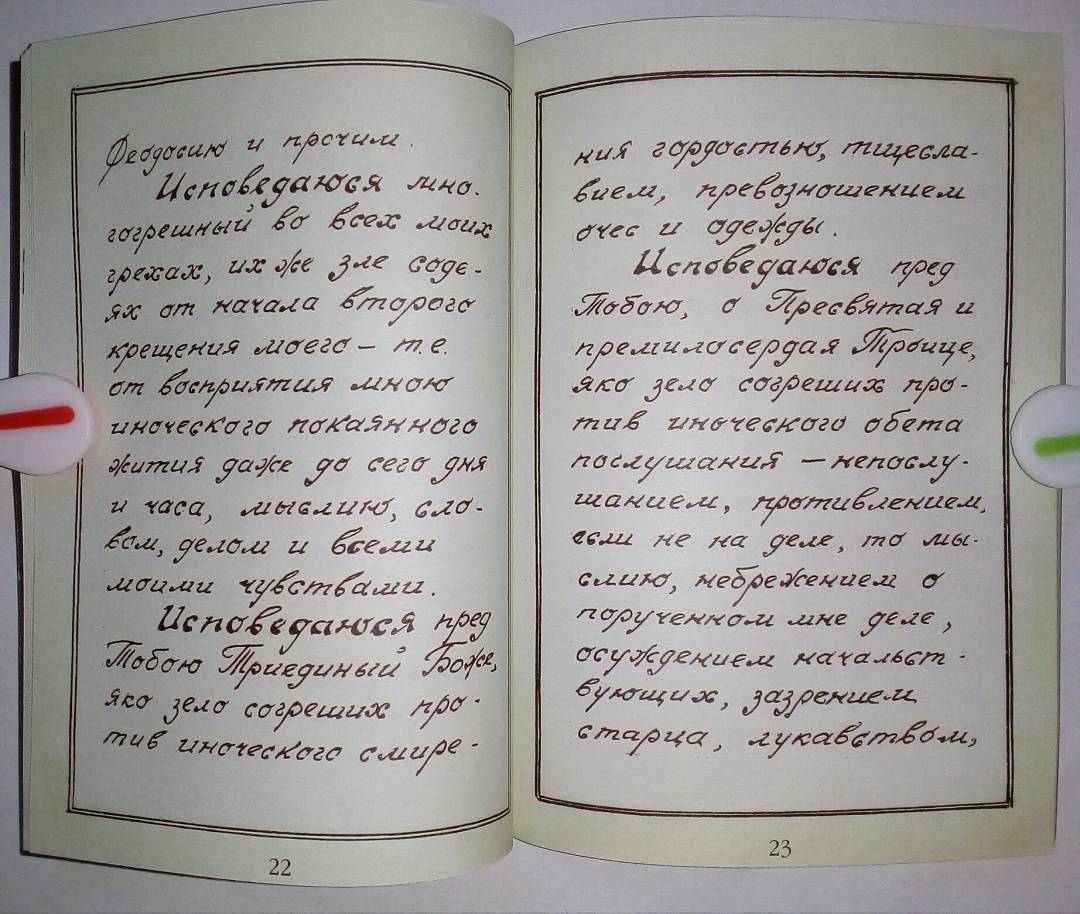 Феодосию и прочим.
Исповедаюся мно-
гогрешный во всех моих
грехах, их же зле соде-
ях от начала второго
крещения моего – т.е.
от восприятия мною
иноческого покаянного
жития даже до сего дня
и часа, мыслию, сло-
вом, делом и всеми
моими чувствами.
Исповедаюся пред
Тобою Триединый Боже,
яко зело согреших про-
тив иноческого смире-
22
ния гордостью, тщесла-
вием, превозношением
очес и одежды.
Исповедаюся пред
Тобою, о Пресвятая и
премилосердая Троице,
яко зело согреших про-
тив иноческого обета
послушания – непослу-
шанием, противлением,
если не на деле, то мы-
слию, небрежением о
порученном мне деле,
осуждением начальст-
вующих, зазрением
старца, лукавством,
23